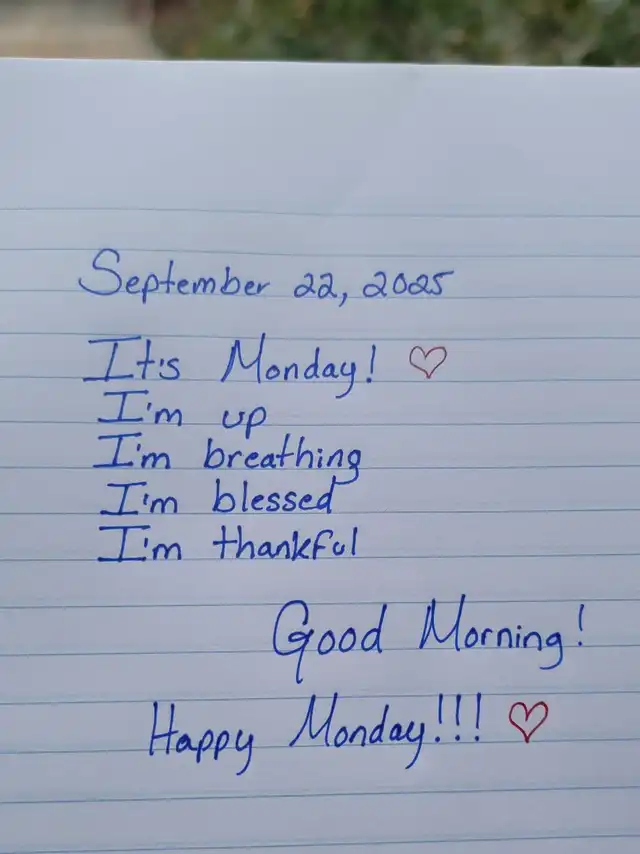 September 22, 2025
It's Monday! ♡
I'm up
I'm breathing
I'm blessed
I'm thankful
Good Morning!
Happy Monday!!! ♡